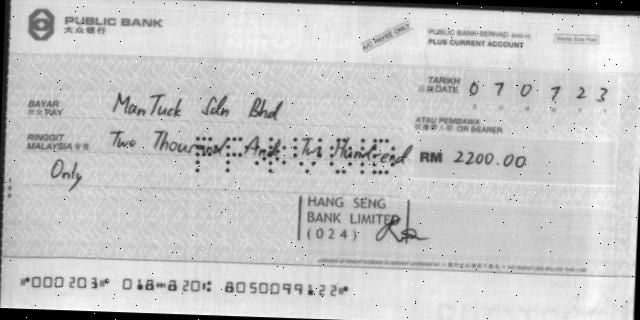 PUBLIC BANK
大众银行
A/C PAYEE ONLY
PUBLIC BANK BERHAD
PLUS CURRENT ACCOUNT
Stamp Duty Paid
TARIKH
日期 DATE 0 7 0 7 2 3
BAYAR
PAY ManTuck Sdn Bhd
ATAU PEMBAWA
OR BEARER
RINGGIT
MALAYSIA Two Thousand And Two Hundred
Only
RM 2200.00
HANG SENG
BANK LIMITED
(024)
⑈000203⑈ 018⑉820⑆ 8050099122⑈